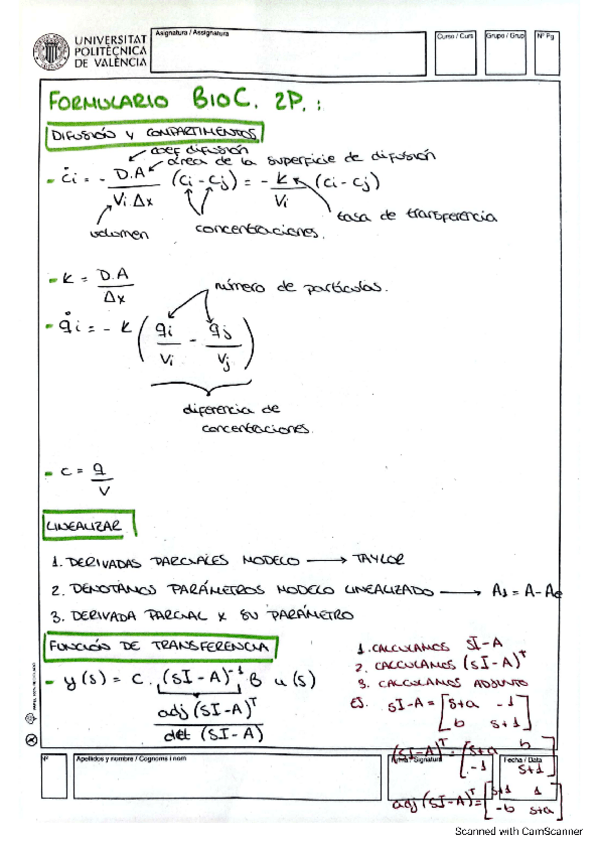 UNIVERSITAT
POLITÈCNICA
DE VALÈNCIA
Asignatura / Assignatura
Curso / Curs
Grupo / Grup
Nº Pg
FORMULARIO BIOC. 2P. :
DIFUSIÓN Y COMPARTIMENTOS
coef difusión
área de la superficie de difusión
- ċi = - D.A / Vi Δx (ci - cj) = - K / Vi (ci - cj)
volumen
concentraciones.
tasa de transferencia
- K = D.A / Δx
número de partículas.
- q̇i = - K ( qi / Vi - qj / Vj )
diferencia de
concentraciones.
- c = q / V
LINEALIZAR
1. DERIVADAS PARCIALES MODELO → TAYLOR
2. DENOTAMOS PARÁMETROS MODELO LINEALIZADO → A1 = A - Ae
3. DERIVADA PARCIAL x SU PARÁMETRO
FUNCIÓN DE TRANSFERENCIA
- y(s) = C . (sI-A)⁻¹ B u(s)
adj (sI-A)ᵀ
det (sI-A)
1. CALCULAMOS sI-A
2. CALCULAMOS (sI-A)ᵀ
3. CALCULAMOS ADJUNTO
EJ. sI-A = [ s+a -1
b s+1 ]
(sI-A)ᵀ = [ s+a b
-1 s+1 ]
adj (sI-A)ᵀ = [ s+1 1
-b s+a ]
Nº
Apellidos y nombre / Cognoms i nom
Firma / Signatura
Fecha / Data
Scanned with CamScanner